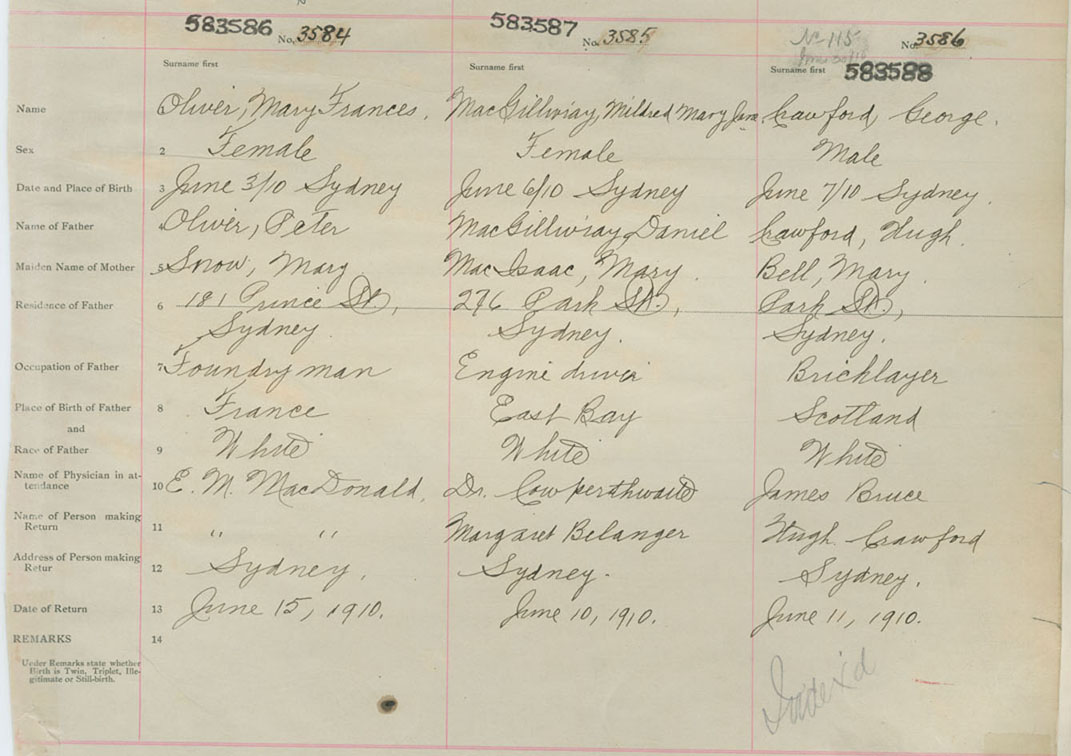 583586 No. 3584 583587 No. 3585 No 115 No. 3586
Surname first Surname first Surname first 583588
Name Oliver, Mary Frances. MacGillivray, Mildred Mary Jane Crawford, George.
Sex 2 Female Female Male
Date and Place of Birth 3 June 3/10 Sydney June 6/10 Sydney June 7/10 Sydney.
Name of Father 4 Oliver, Peter MacGillivray, Daniel Crawford, Hugh.
Maiden Name of Mother 5 Snow, Mary MacIsaac, Mary. Bell, Mary.
Residence of Father 6 181 Prince St., 276 Park St., Park St.,
Sydney Sydney. Sydney.
Occupation of Father 7 Foundryman Engine driver Bricklayer
Place of Birth of Father 8 France East Bay Scotland
and
Race of Father 9 White White White
Name of Physician in at-
tendance 10 E. M. MacDonald, Dr. Cowperthwaite James Bruce
Name of Person making
Return 11 " " Margaret Belanger Hugh Crawford
Address of Person making
Retur 12 Sydney. Sydney. Sydney.
Date of Return 13 June 15, 1910. June 10, 1910. June 11, 1910.
REMARKS 14
Under Remarks state whether
Birth is Twin, Triplet, Ille-
gitimate or Still-birth.
Index'd